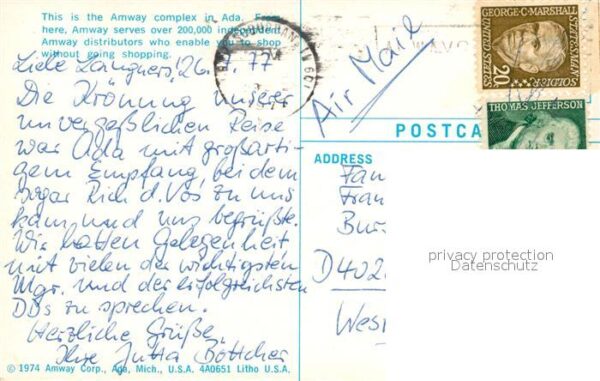 This is the Amway complex in Ada. From
here, Amway serves over 200,000 independent
Amway distributors who enable you to shop
without going shopping.
Liebe Längners! 26.7.77
Die Krönung unserer
unvergeßlichen Reise
war Ada mit großarti-
gem Empfang, bei dem
sogar Rich d. Vos zu uns
kam und uns begrüßte.
Wir hatten Gelegenheit
mit vielen der wichtigsten
Mgr. und der erfolgreichsten
DDs zu sprechen.
Herzliche Grüße,
Ihre Jutta Böttcher
© 1974 Amway Corp., Ada, Mich., U.S.A. 4A0651 Litho U.S.A.
Air Mail
GEORGE·C·MARSHALL
STATESMAN
SOLDIER
UNITED STATES
20c
THOMAS JEFFERSON
POSTCA
ADDRESS
Fam
Fran
Bur
D402
Wes
privacy protection
Datenschutz